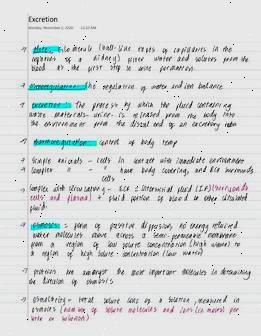 Excretion
Monday, November 2, 2020
filter: Glomerule (ball-like knots of capillaries in the
nephrons of a kidney) filter water and solutes from the
blood as the first step in urine formation
osmoregulation: the regulation of water and ion balance
excretion: the process by which the fluid containing
waste materials - urine - is released from the body into
the environment from the distal end of an excretory tubule
thermoregulation: control of body temp
simple animals - cells in contact with immediate environment
complex " - have body covering, and ECF surrounds
cells
complex with circulatory - ECF = interstitial fluid (IF) (surrounds
cells and plasma) + fluid portion of blood or other circulated
fluid
osmosis: a form of passive diffusion, no energy required
water molecules above a semi-permeable membrane
from a region of low solute concentration (high water) to
a region of high solute concentration (low water)
proteins are amongst the most important molecules in determining
the direction of osmosis
osmolarity = total solute conc of a solution, measured in
osmoles (number of solute molecules and ions (in moles) per
litre of solution)